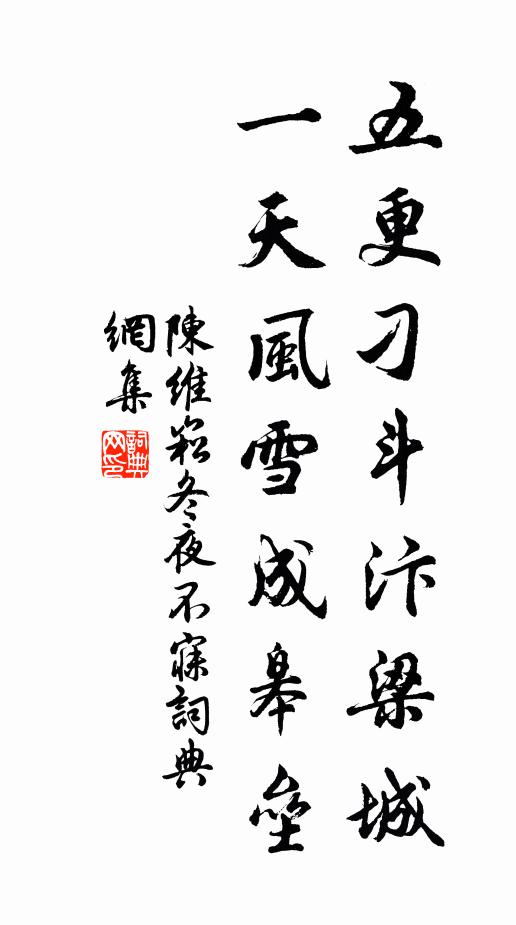 五更刁斗汴梁城
一天風雪成皋壘
陳維崧冬夜不寐詞典
網集
詞典网印